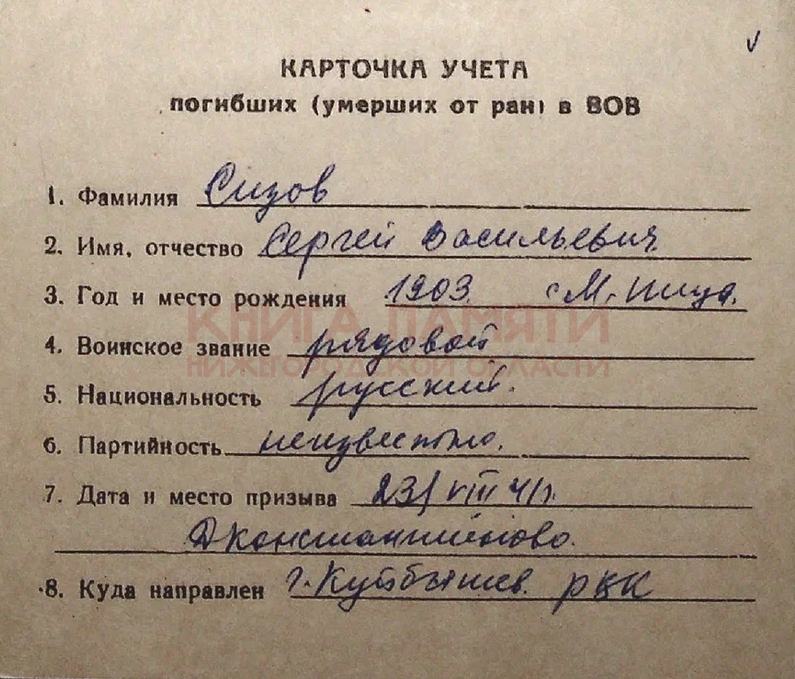 КАРТОЧКА УЧЕТА
погибших (умерших от ран) в ВОВ
1. Фамилия Сизов
2. Имя, отчество Сергей Васильевич
3. Год и место рождения 1903 с М. пица.
КНИГА ПАМЯТИ
4. Воинское звание рядовой
НИЖЕГОРОДСКОЙ ОБЛАСТИ
5. Национальность русский.
6. Партийность неизвестно.
7. Дата и место призыва 23/VIII 41г.
Дконстантиново.
8. Куда направлен г. Куйбышев. РВК